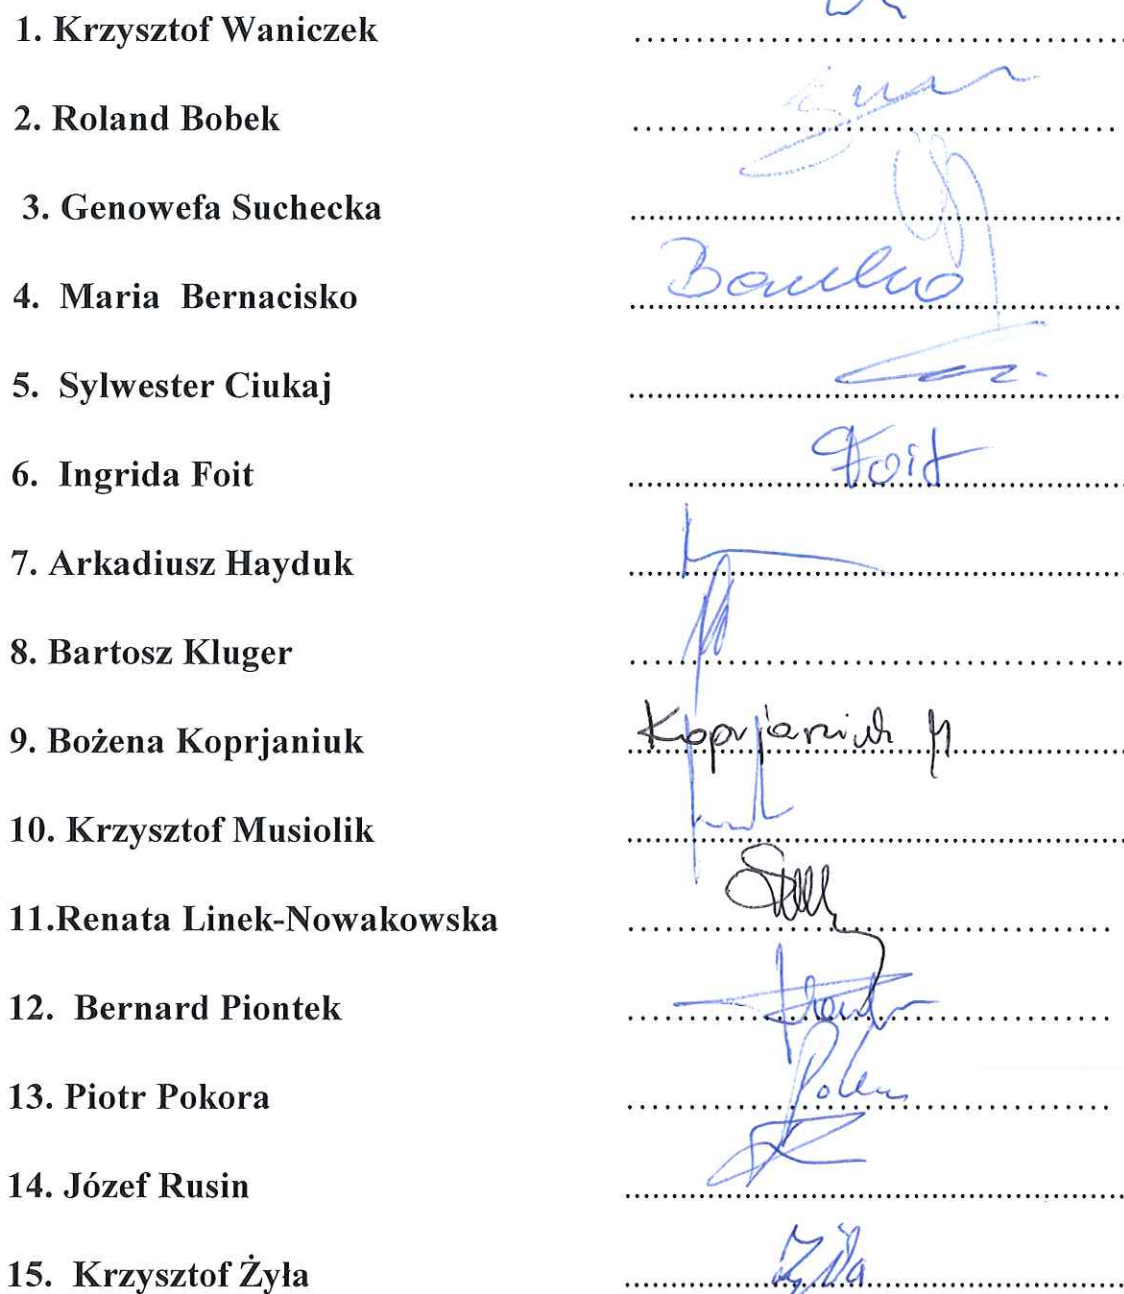 1. Krzysztof Waniczek
2. Roland Bobek
3. Genowefa Suchecka
4. Maria Bernacisko
5. Sylwester Ciukaj
6. Ingrida Foit Foit
7. Arkadiusz Hayduk
8. Bartosz Kluger
9. Bożena Koprjaniuk Koprjaniuk
10. Krzysztof Musiolik
11.Renata Linek-Nowakowska
12. Bernard Piontek
13. Piotr Pokora
14. Józef Rusin
15. Krzysztof Żyła Żyła